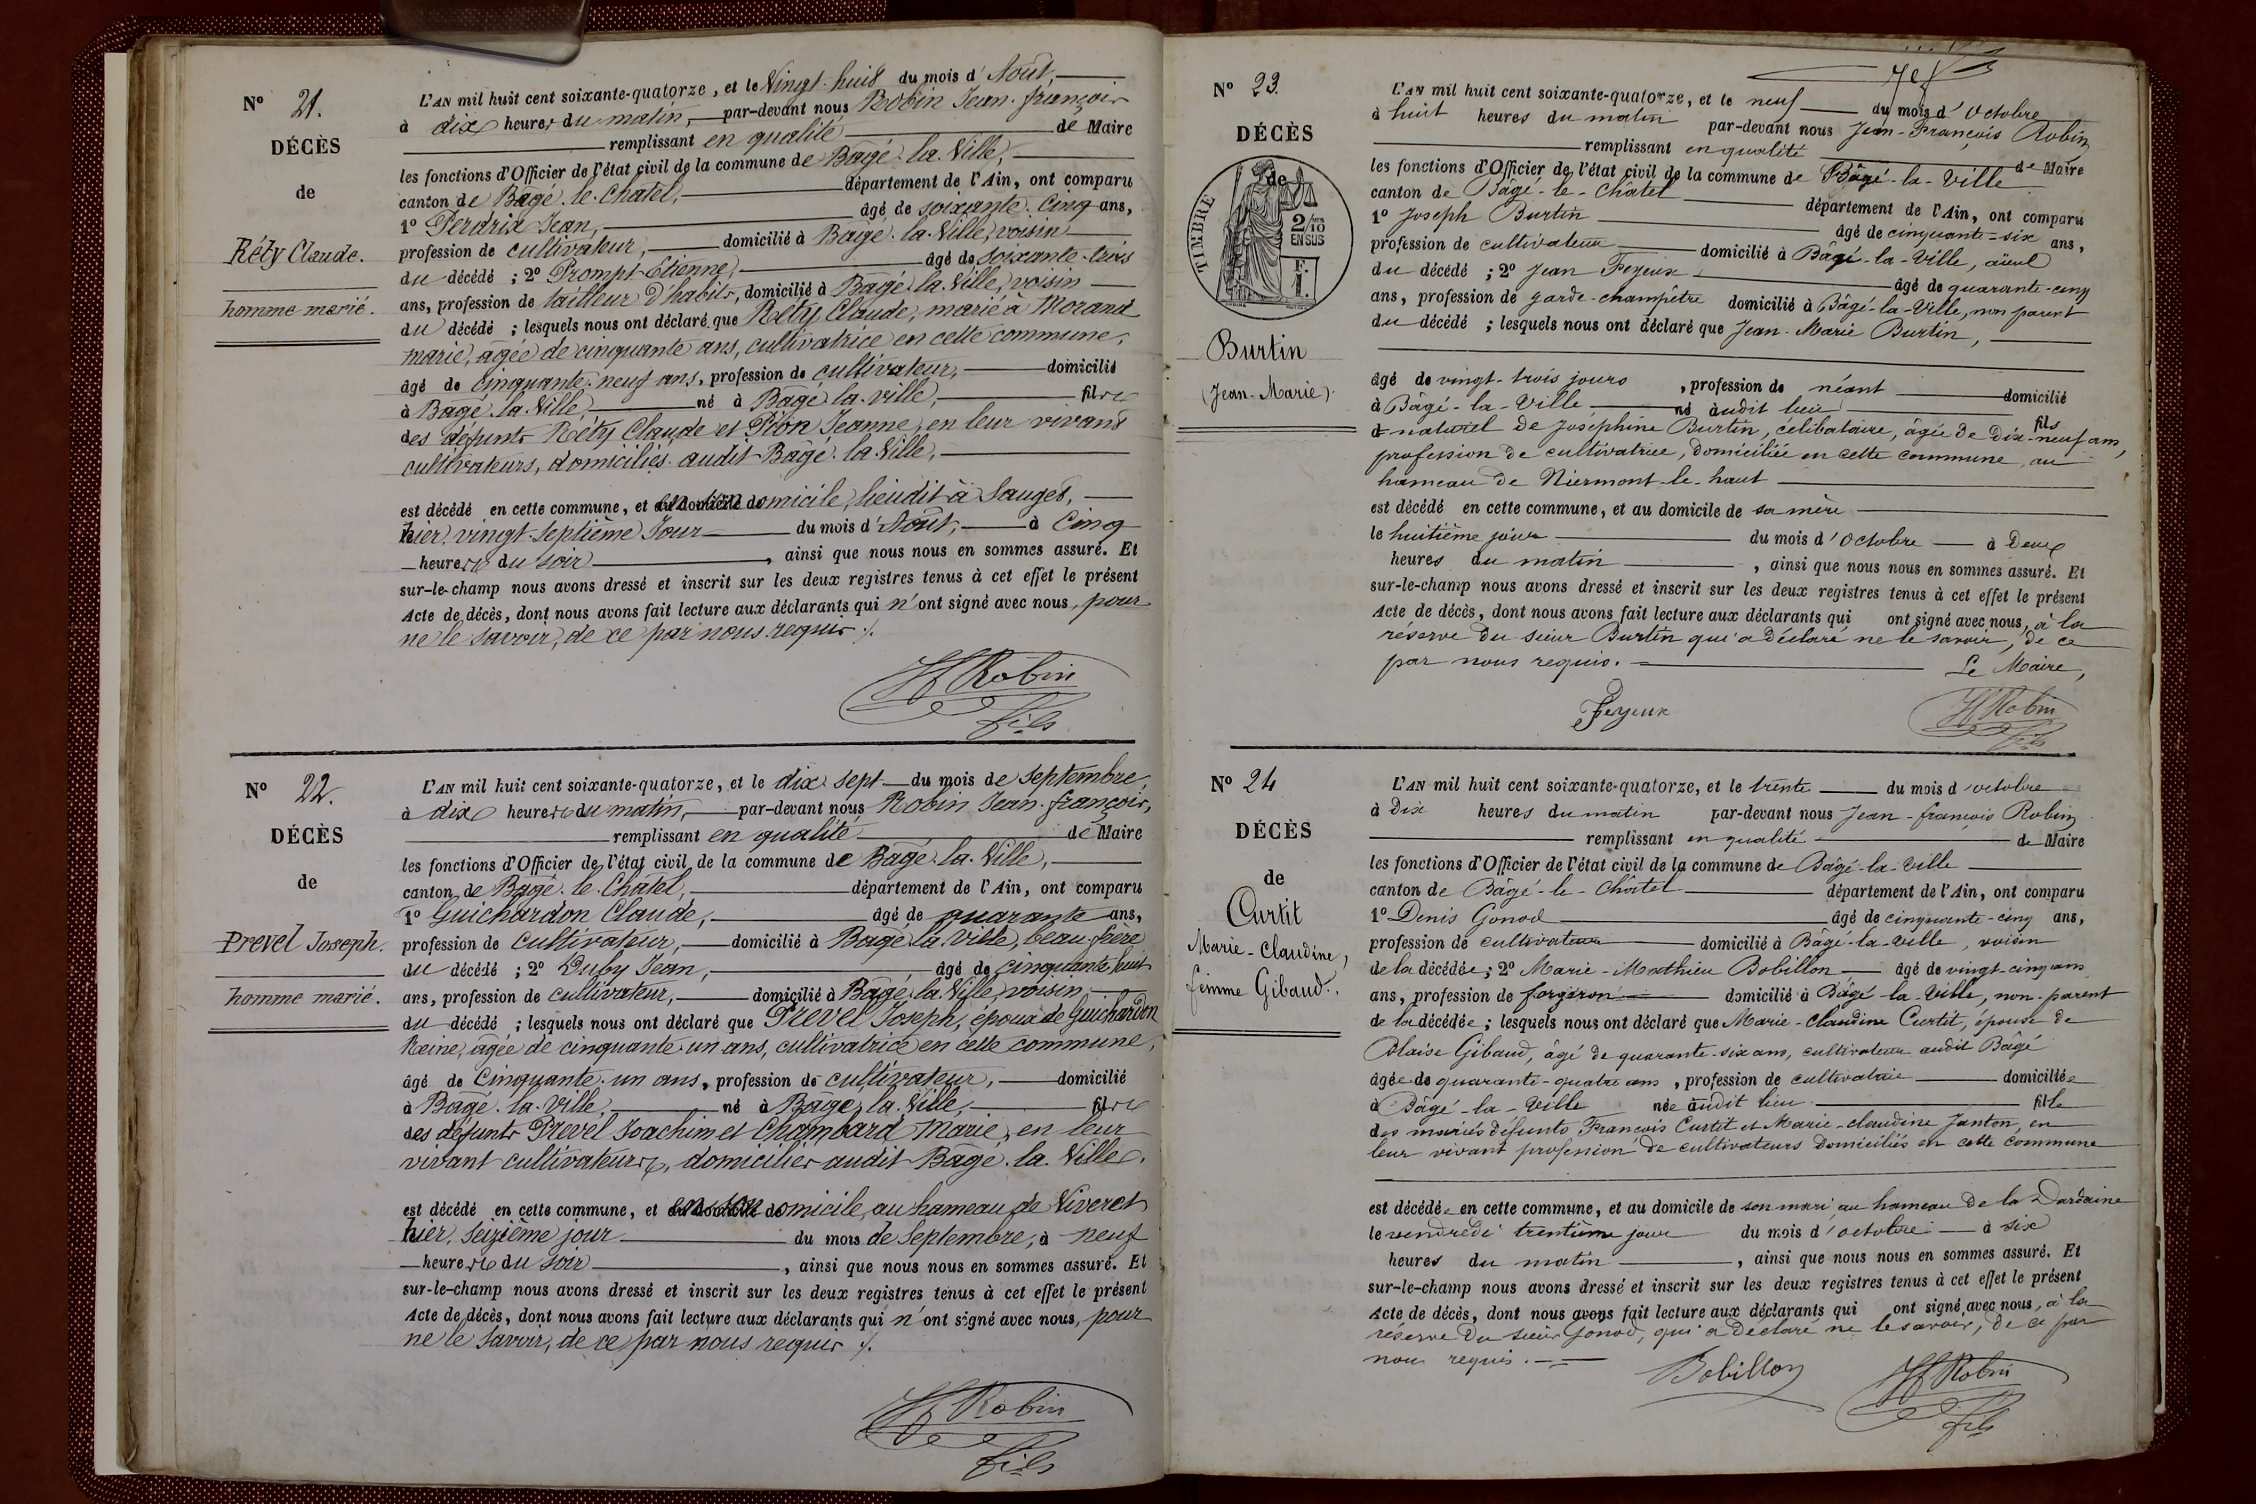 N° 21.
DÉCÈS
de
Réty Claude.
homme marié.
L'AN mil huit cent soixante-quatorze, et le Vingt-huit du mois d'Août,
à dix heures du matin, par-devant nous Robin Jean-françois
remplissant en qualité de Maire
les fonctions d'Officier de l'état civil de la commune de Bagé-la-Ville,
canton de Bagé-le-Chatel, département de l'Ain, ont comparu
1° Perdrix Jean, âgé de soixante-cinq ans,
profession de cultivateur, domicilié à Bagé-la-Ville, voisin
du décédé ; 2° Prompt Etienne, âgé de soixante-trois
ans, profession de tailleur d'habits, domicilié à Bagé-la-Ville, voisin
du décédé ; lesquels nous ont déclaré que Réty Claude, marié à Morand
Marie, agée de cinquante ans, cultivatrice en cette commune,
âgé de cinquante-neuf ans, profession de cultivateur, domicilié
à Bagé-la-Ville, né à Bagé-la-ville, fils
des défunts Réty Claude et Pion Jeanne, en leur vivant
cultivateurs, domiciliés audit Bagé-la-Ville,
est décédé en cette commune, et en son domicile, lieudit à Sauget,
hier, vingt-septième Jour du mois d'Août, à Cinq
heures du soir, ainsi que nous nous en sommes assuré. Et
sur-le-champ nous avons dressé et inscrit sur les deux registres tenus à cet effet le présent
Acte de décès, dont nous avons fait lecture aux déclarants qui n'ont signé avec nous, pour
ne le savoir, de ce par nous requis ./.
Robin
fils
N° 22.
DÉCÈS
de
Prevel Joseph.
homme marié.
L'AN mil huit cent soixante-quatorze, et le dix-sept du mois de Septembre
à dix heures du matin, par-devant nous Robin Jean-françois,
remplissant en qualité de Maire
les fonctions d'Officier de l'état civil de la commune de Bagé-la-Ville,
canton de Bagé-le-Châtel, département de l'Ain, ont comparu
1° Guichardon Claude, âgé de quarante ans,
profession de cultivateur, domicilié à Bagé-la-Ville, beau-frère
du décédé ; 2° Duby Jean, âgé de cinquante-huit
ans, profession de cultivateur, domicilié à Bagé-la-Ville, voisin
du décédé ; lesquels nous ont déclaré que Prevel Joseph, époux de Guichardon
Reine, agée de cinquante-un ans, cultivatrice en cette commune,
âgé de Cinquante-un ans, profession de cultivateur, domicilié
à Bagé-la-Ville, né à Bagé-la-Ville, fils
des défunts Prevel Joachim et Chambard Marie, en leur
vivant cultivateurs, domiciliés audit Bagé-la-Ville.
est décédé en cette commune, et en son domicile, au hameau de Viveret
hier, seizième jour du mois de Septembre, à neuf
heures du soir, ainsi que nous nous en sommes assuré. Et
sur-le-champ nous avons dressé et inscrit sur les deux registres tenus à cet effet le présent
Acte de décès, dont nous avons fait lecture aux déclarants qui n'ont signé avec nous, pour
ne le savoir, de ce par nous requis ./.
Robin
fils
N° 23.
DÉCÈS
de
TIMBRE
2/10
EN SUS
Burtin
(Jean-Marie).
L'AN mil huit cent soixante-quatorze, et le neuf du mois d'octobre
à huit heures du matin par-devant nous Jean-François Robin
remplissant en qualité de Maire
les fonctions d'Officier de l'état civil de la commune de Bâgé-la-Ville
canton de Bâgé-le-Châtel département de l'Ain, ont comparu
1° Joseph Burtin âgé de cinquante-six ans,
profession de cultivateur domicilié à Bâgé-la-Ville, aïeul
du décédé ; 2° Jean Feyeux âgé de quarante-cinq
ans, profession de garde-champêtre domicilié à Bâgé-la-Ville, non parent
du décédé ; lesquels nous ont déclaré que Jean-Marie Burtin,
âgé de vingt-trois jours, profession de néant domicilié
à Bâgé-la-Ville né audit lieu fils
naturel de Joséphine Burtin, célibataire, âgée de dix-neuf ans,
profession de cultivatrice, domiciliée en cette commune, au
hameau de Niermont-le-haut
est décédé en cette commune, et au domicile de sa mère
le huitième jour du mois d'octobre à Deux
heures du matin, ainsi que nous nous en sommes assuré. Et
sur-le-champ nous avons dressé et inscrit sur les deux registres tenus à cet effet le présent
Acte de décès, dont nous avons fait lecture aux déclarants qui ont signé avec nous, à la
réserve du sieur Burtin qui a déclaré ne le savoir, de ce
par nous requis. Le Maire,
Feyeux Robin
fils
N° 24
DÉCÈS
de
Curtit
Marie-Claudine,
femme Gibaud.
L'AN mil huit cent soixante-quatorze, et le trente du mois d'octobre
à Dix heures du matin par-devant nous Jean-françois Robin
remplissant en qualité de Maire
les fonctions d'Officier de l'état civil de la commune de Bâgé-la-ville
canton de Bâgé-le-Châtel département de l'Ain, ont comparu
1° Denis Gonod âgé de cinquante-cinq ans,
profession de cultivateur domicilié à Bâgé-la-Ville, voisin
de la décédée ; 2° Marie-Mathieu Bobillon âgé de vingt-cinq ans
ans, profession de forgeron domicilié à Bâgé-la-Ville, non-parent
de la décédée ; lesquels nous ont déclaré que Marie-Claudine Curtit, épouse de
Blaise Gibaud, âgé de quarante-six ans, cultivateur audit Bâgé
âgée de quarante-quatre ans, profession de cultivatrice domiciliée
à Bâgé-la-Ville née audit lieu fille
des mariés défunts François Curtit et Marie-claudine Janton, en
leur vivant profession de cultivateurs domiciliés en cette commune
est décédée en cette commune, et au domicile de son mari au hameau de la Dardaine
le vendredi trentième jour du mois d'octobre à six
heures du matin, ainsi que nous nous en sommes assuré. Et
sur-le-champ nous avons dressé et inscrit sur les deux registres tenus à cet effet le présent
Acte de décès, dont nous avons fait lecture aux déclarants qui ont signé avec nous, à la
réserve du sieur Gonod, qui a déclaré ne le savoir, de ce par
nous requis.
Bobillon Robin
fils